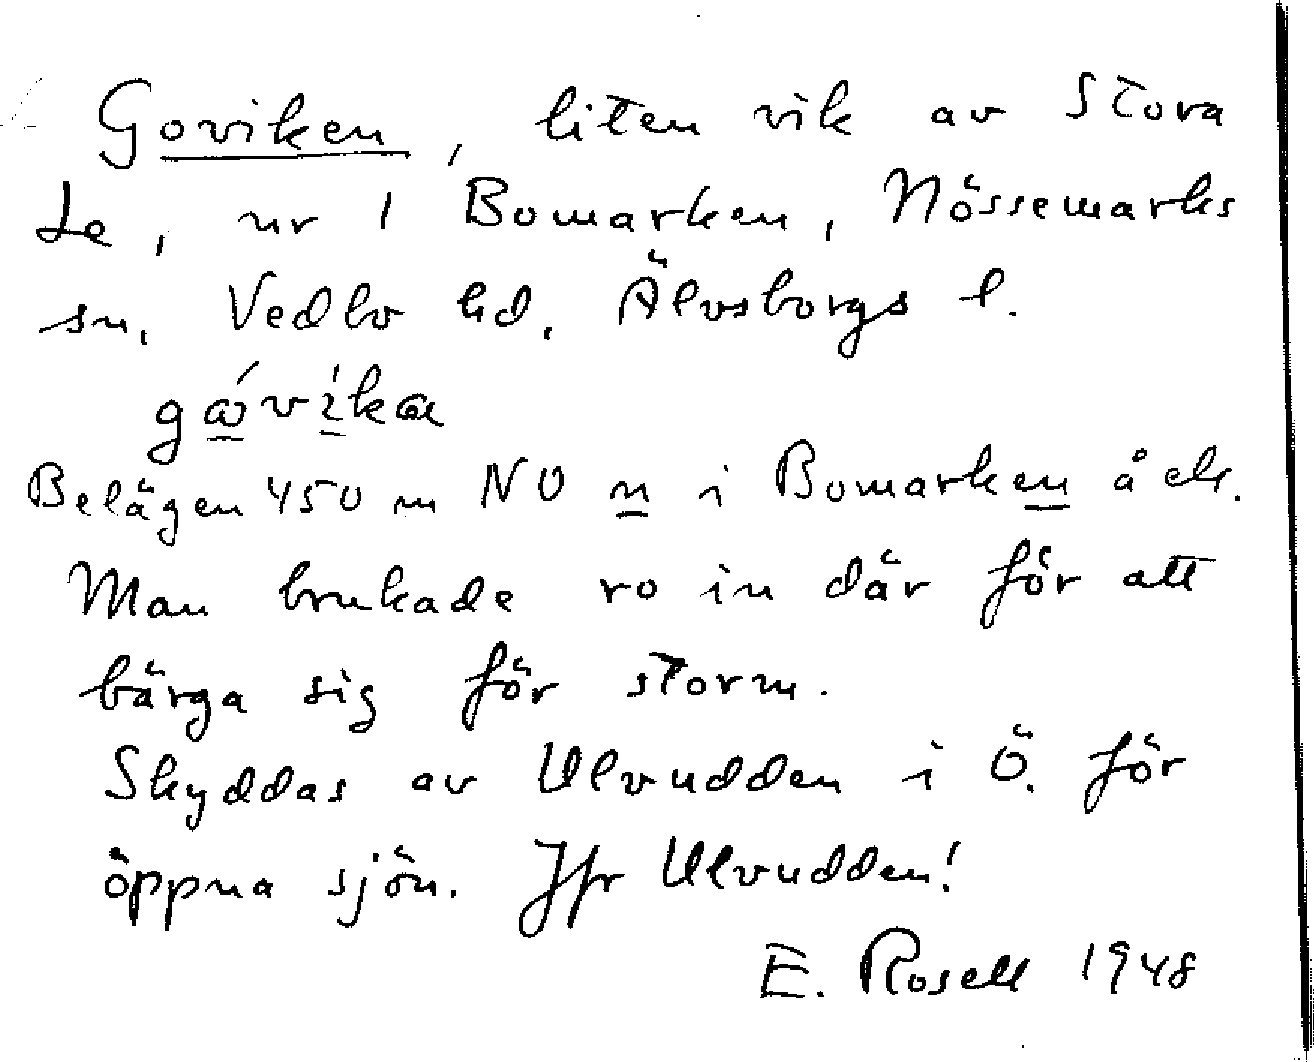 Goviken, liten vik av Stora
Le, nr 1 Bomarken, Nössemarks
sn, Vedbo hd. Älvsborgs l.
Belägen 450 m NO n i Bomarken å ek.
Man brukade ro in där för att
bärga sig för storm.
Skyddas av Ulvudden i Ö. för
öppna sjön. Jfr Ulvudden!
E. Rosell 1948